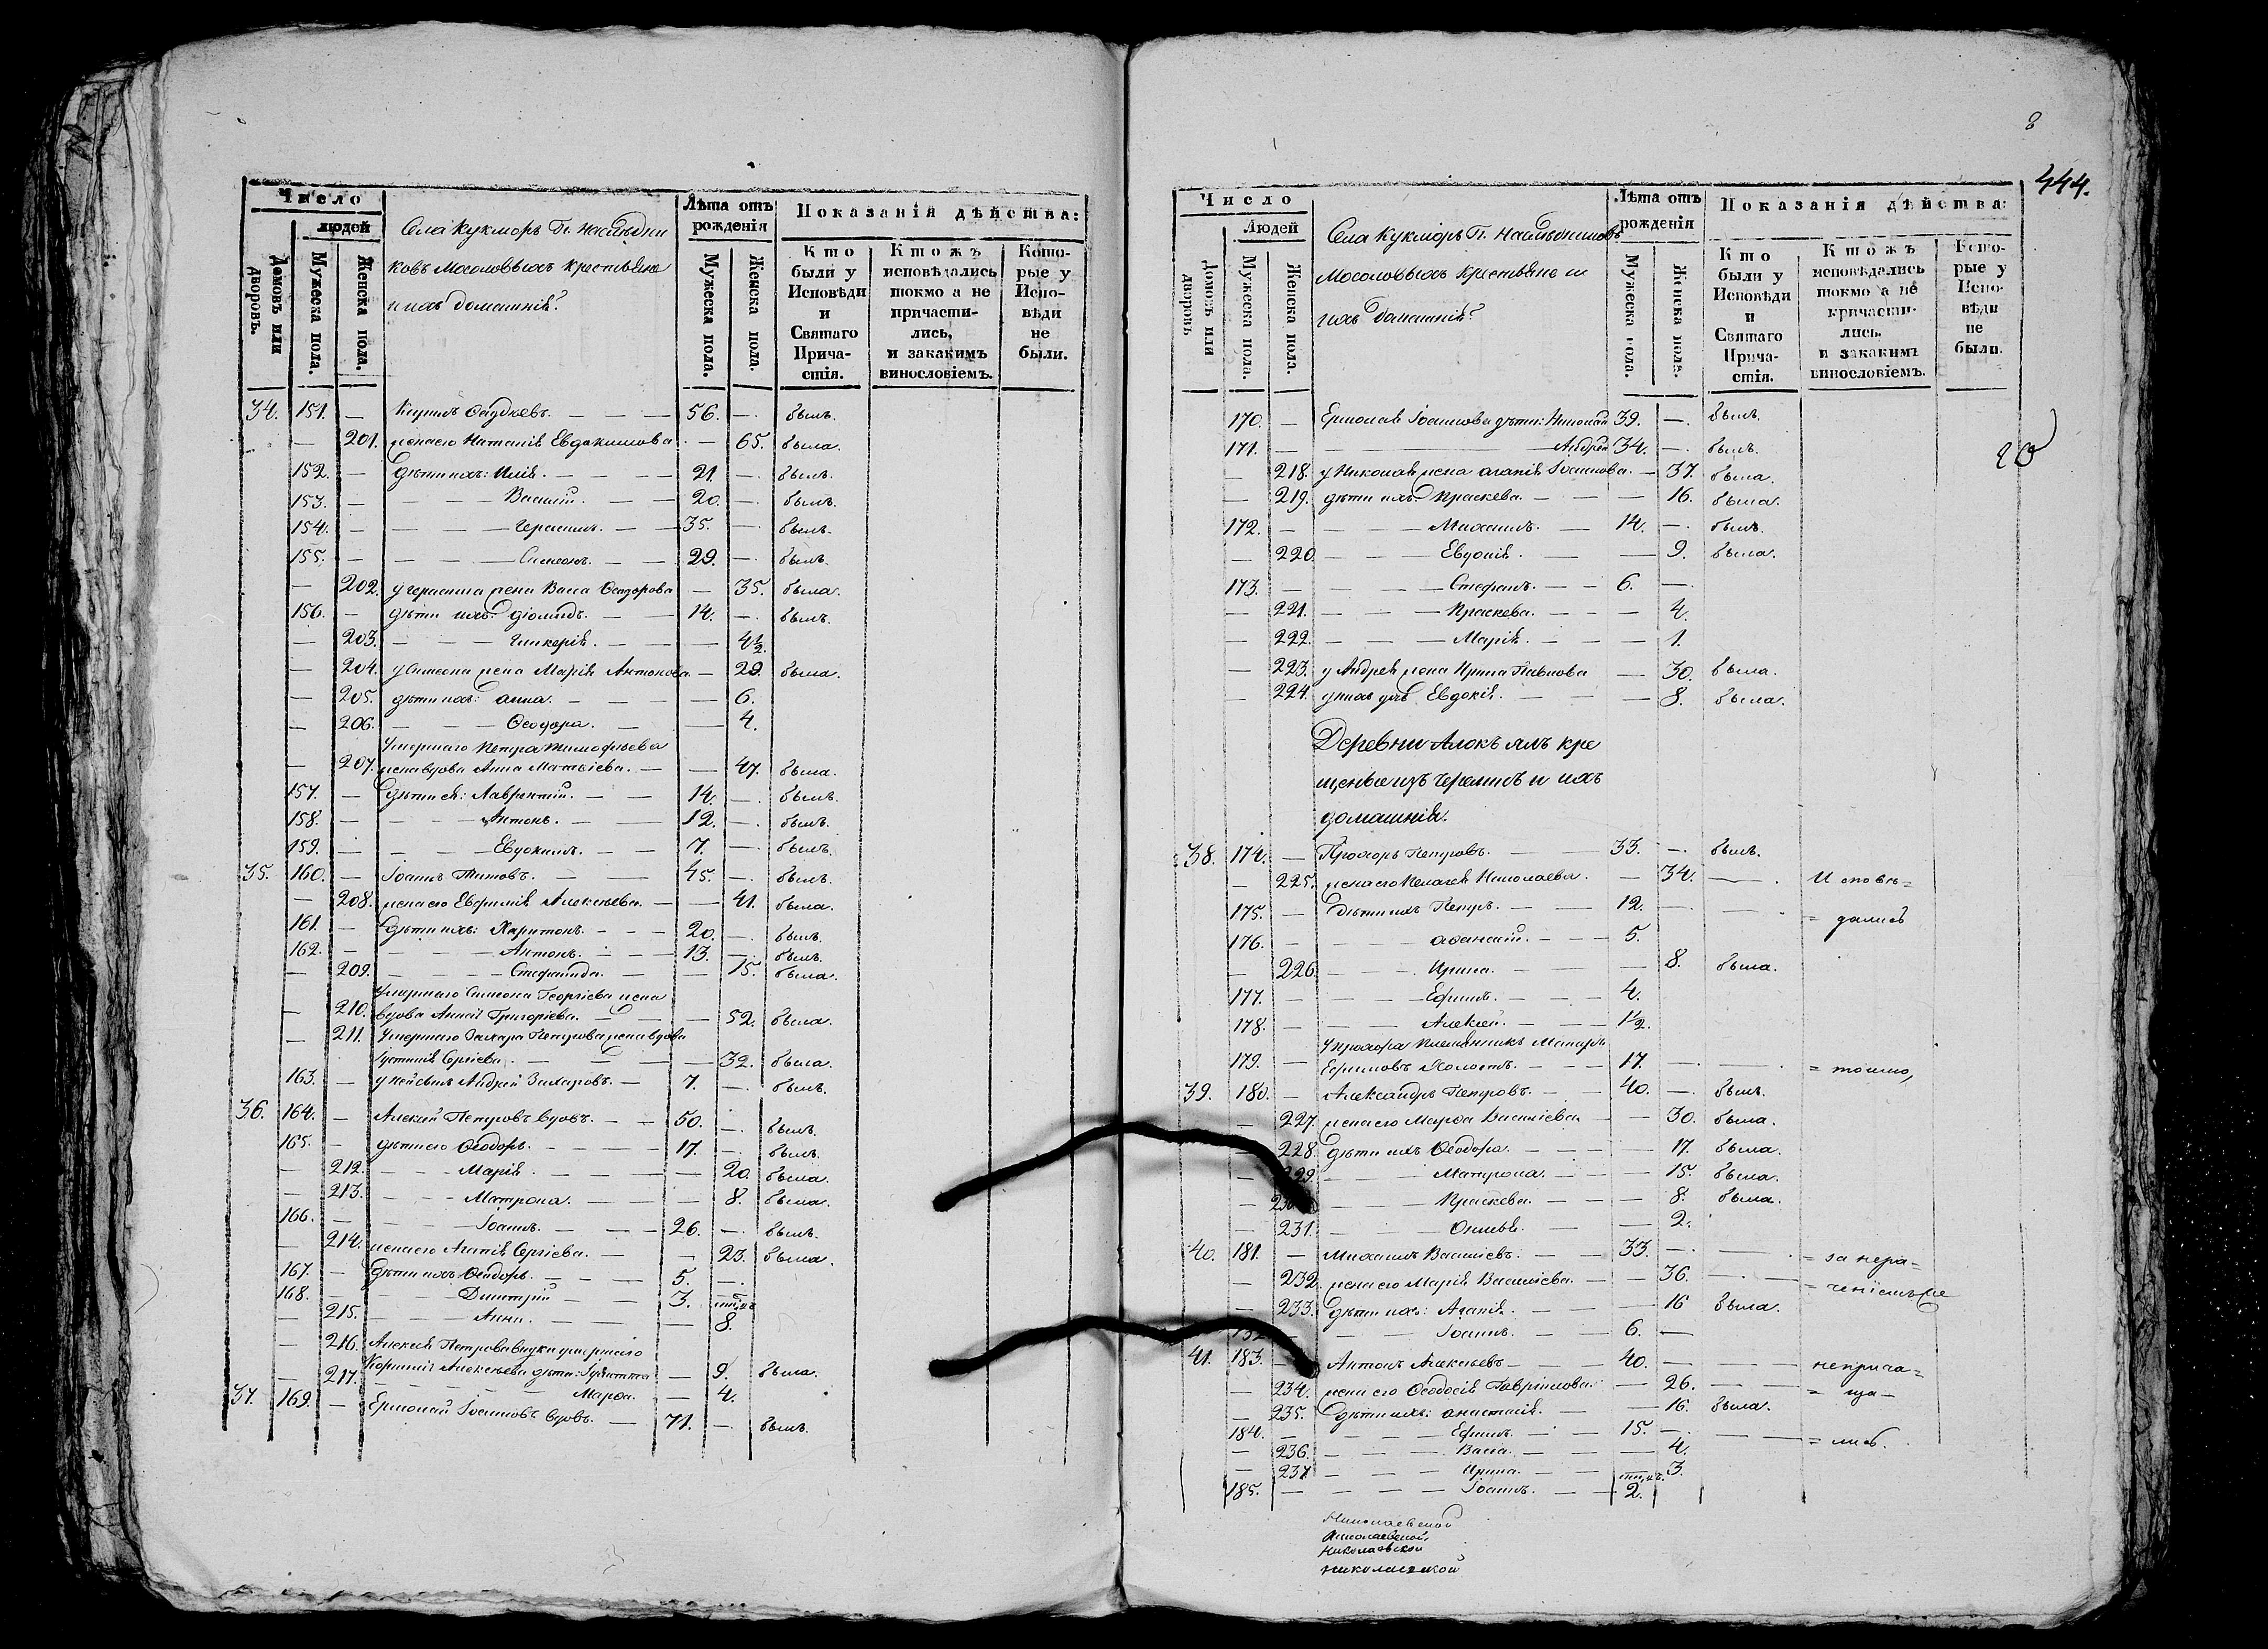 Число
людей
Домовъ или дворовъ.
Мужеска пола.
Женска пола.
Села Кукморъ Гг. Наслѣдни
ковъ Мосоловыхъ крестьяне
и ихъ домашніе
Лѣта отъ рожденія
Мужеска пола.
Женска пола.
Показанія дѣйства:
Кто были у Исповѣди и Святаго Прича-стія.
Ктожъ исповѣдались токмо а не причасти-лись, и закакимъ винословіемъ.
Кото-рые у Испо-вѣди не были.
34. 151. — 56. —. былъ.
— 201. жена его Наталія Евдокимова — 65. была
152. — дѣти ихъ: Илія. 21. —. былъ.
153. — Василій. 20. —. былъ.
154. — Герасимъ. 35. —. былъ.
155. — Симеонъ. 29. —. былъ.
— 202. у Герасима жена Васса Ѳеодорова — 35. была.
156. — дѣти ихъ: Діомидъ. 14. —. былъ.
— 203. Гликерія. — 4 1/2
— 204. у Симеона жена Марія Антонова — 29. была.
— 205. дѣти ихъ: Анна. — 6.
— 206. Ѳеодора. — 4.
Умершаго Петра Тимофѣева
— 207. жена вдова Анна Матвіева. — 47. была.
157. — дѣти ея: Лаврентій. 14. —. былъ.
158. — Антонъ. 12. —. былъ.
159. — Евдокимъ. 7. —. былъ.
35. 160. — Іоаннъ Титовъ. 45. —. былъ.
— 208. жена его Евфимія Алексѣева. — 41. была.
161. — дѣти ихъ: Харитонъ. 20. —. былъ.
162. — Антонъ. 13. —. былъ.
— 209. Степанида. — 15. была.
Умершаго Симеона Георгіева жена
— 210. вдова Анисія Григоріева. — 52. была.
— 211. Умершаго Захара Петрова жена вдова
Іустинія Сергіева. — 32. была.
163. — у ней сынъ Андрей Захаровъ. 7. —. былъ.
36. 164. — Алексій Петровъ вдовъ. 50. —. былъ.
165. — дѣти его Ѳеодоръ. 17. —. былъ.
— 212. Марія. — 20. была.
— 213. Матрона. — 8. была.
166. — Іоаннъ. 26. —. былъ.
— 214. жена его Агапія Сергіева. — 23. была.
167. — дѣти ихъ Ѳеодоръ. 5. —.
168. — Димитрій 3. —
— 215. Анна. — 8.
— 216. Алексѣя Петрова внуки умершаго
Корнилія Алексѣева дѣти: — 9. была.
— 217. Марѳа. — 4.
37. 169. — Ермолай Іоанновъ вдовъ. 71. —. былъ.
8
444.
Число
Людей
Домовъ или дворовъ
Мужеска пола.
Женска пола.
Села Кукморъ Гг. Наслѣдниковъ
Мосоловыхъ крестьяне и
ихъ домашніе
Лѣта отъ рожденія
Мужеска пола.
Женска пола.
Показанія дѣйства:
Кто были у Исповѣди и Святаго Прича-стія.
Ктожъ исповѣдались токмо а не причасти-лись. и закакимъ винословіемъ.
Кото-рые у Испо-вѣди не были.
170. — Ермолая Іоаннова дѣти: Николай 39. —. былъ.
171. — Андрей 34. —. былъ.
— 218. у Николая жена Агапія Іоаннова. — 37. была.
— 219. дѣти ихъ: Праскева. — 16. была.
172. — Михаилъ. 14. —. былъ.
— 220. Евдокія. — 9. была.
173. — Стефанъ. 6. —.
— 221. Праскева. — 4.
— 222. Марія. — 1.
— 223. у Андрея жена Ирина Павлова — 30. была.
— 224. у нихъ дочь Евдокія. — 8. была.
Деревни Алокъ ялъ кре
щеные изъ черемисъ и ихъ
домашнія.
38. 174. — Прохоръ Петровъ. 33. —. былъ.
— 225. жена его Пелагея Николаева. — 34. — Исповѣ=
175. — дѣти ихъ Петръ. 12. — = дались
176. — Аѳанасій. 5.
— 226. Ирина. — 8. была.
177. — Ефимъ. 4.
178. — Алексій. 1 1/2.
У Прохора племянникъ Макаръ
179. — Ефимовъ холостъ. 17. — = токмо,
39. 180. — Александръ Петровъ. 40. —. былъ.
— 227. жена его Марѳа Василіева — 30. была.
— 228. дѣти ихъ Ѳеодора. — 17. была.
— 229. Матрона. — 15. была.
— 230. Праскева. — 8. была.
— 231. — 2.
40. 181. — Михаилъ Василіевъ. 33. — = за нера=
— 232. жена его Марія Василіева. — 36. — = ченіемъ не
— 233. дѣти ихъ: Агапія. — 16 была.
182. — Іоаннъ. 6. —
41. 183. — Антонъ Алексѣевъ 40. — неприча=
— 234. жена его Ѳеодосія Гавріилова. — 26. — = ща=
— 235. дѣти ихъ: Анастасія. — 16. была.
184. — Ефимъ. 15. — = лись.
— 236. Васса. — 4.
— 237. Ирина. — 3.
185. — Іоаннъ. 2.
Николаевской
Николаевской,
Николаевской
Николаевской